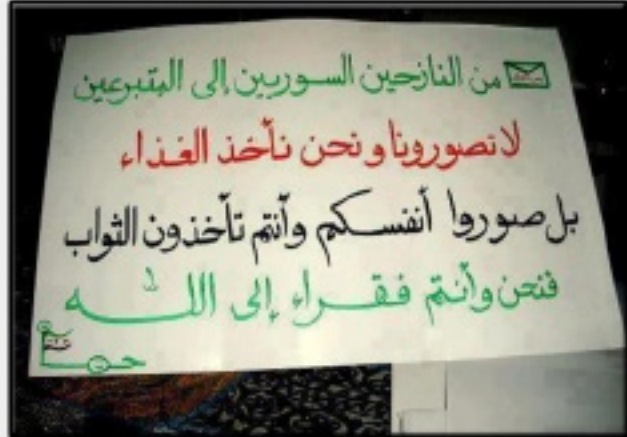 من النازحين السوريين إلى المتبرعين
لا تصورونا ونحن نأخذ الغذاء
بل صوروا أنفسكم وأنتم تأخذون الثواب
فنحن وأنتم فقراء إلى الله